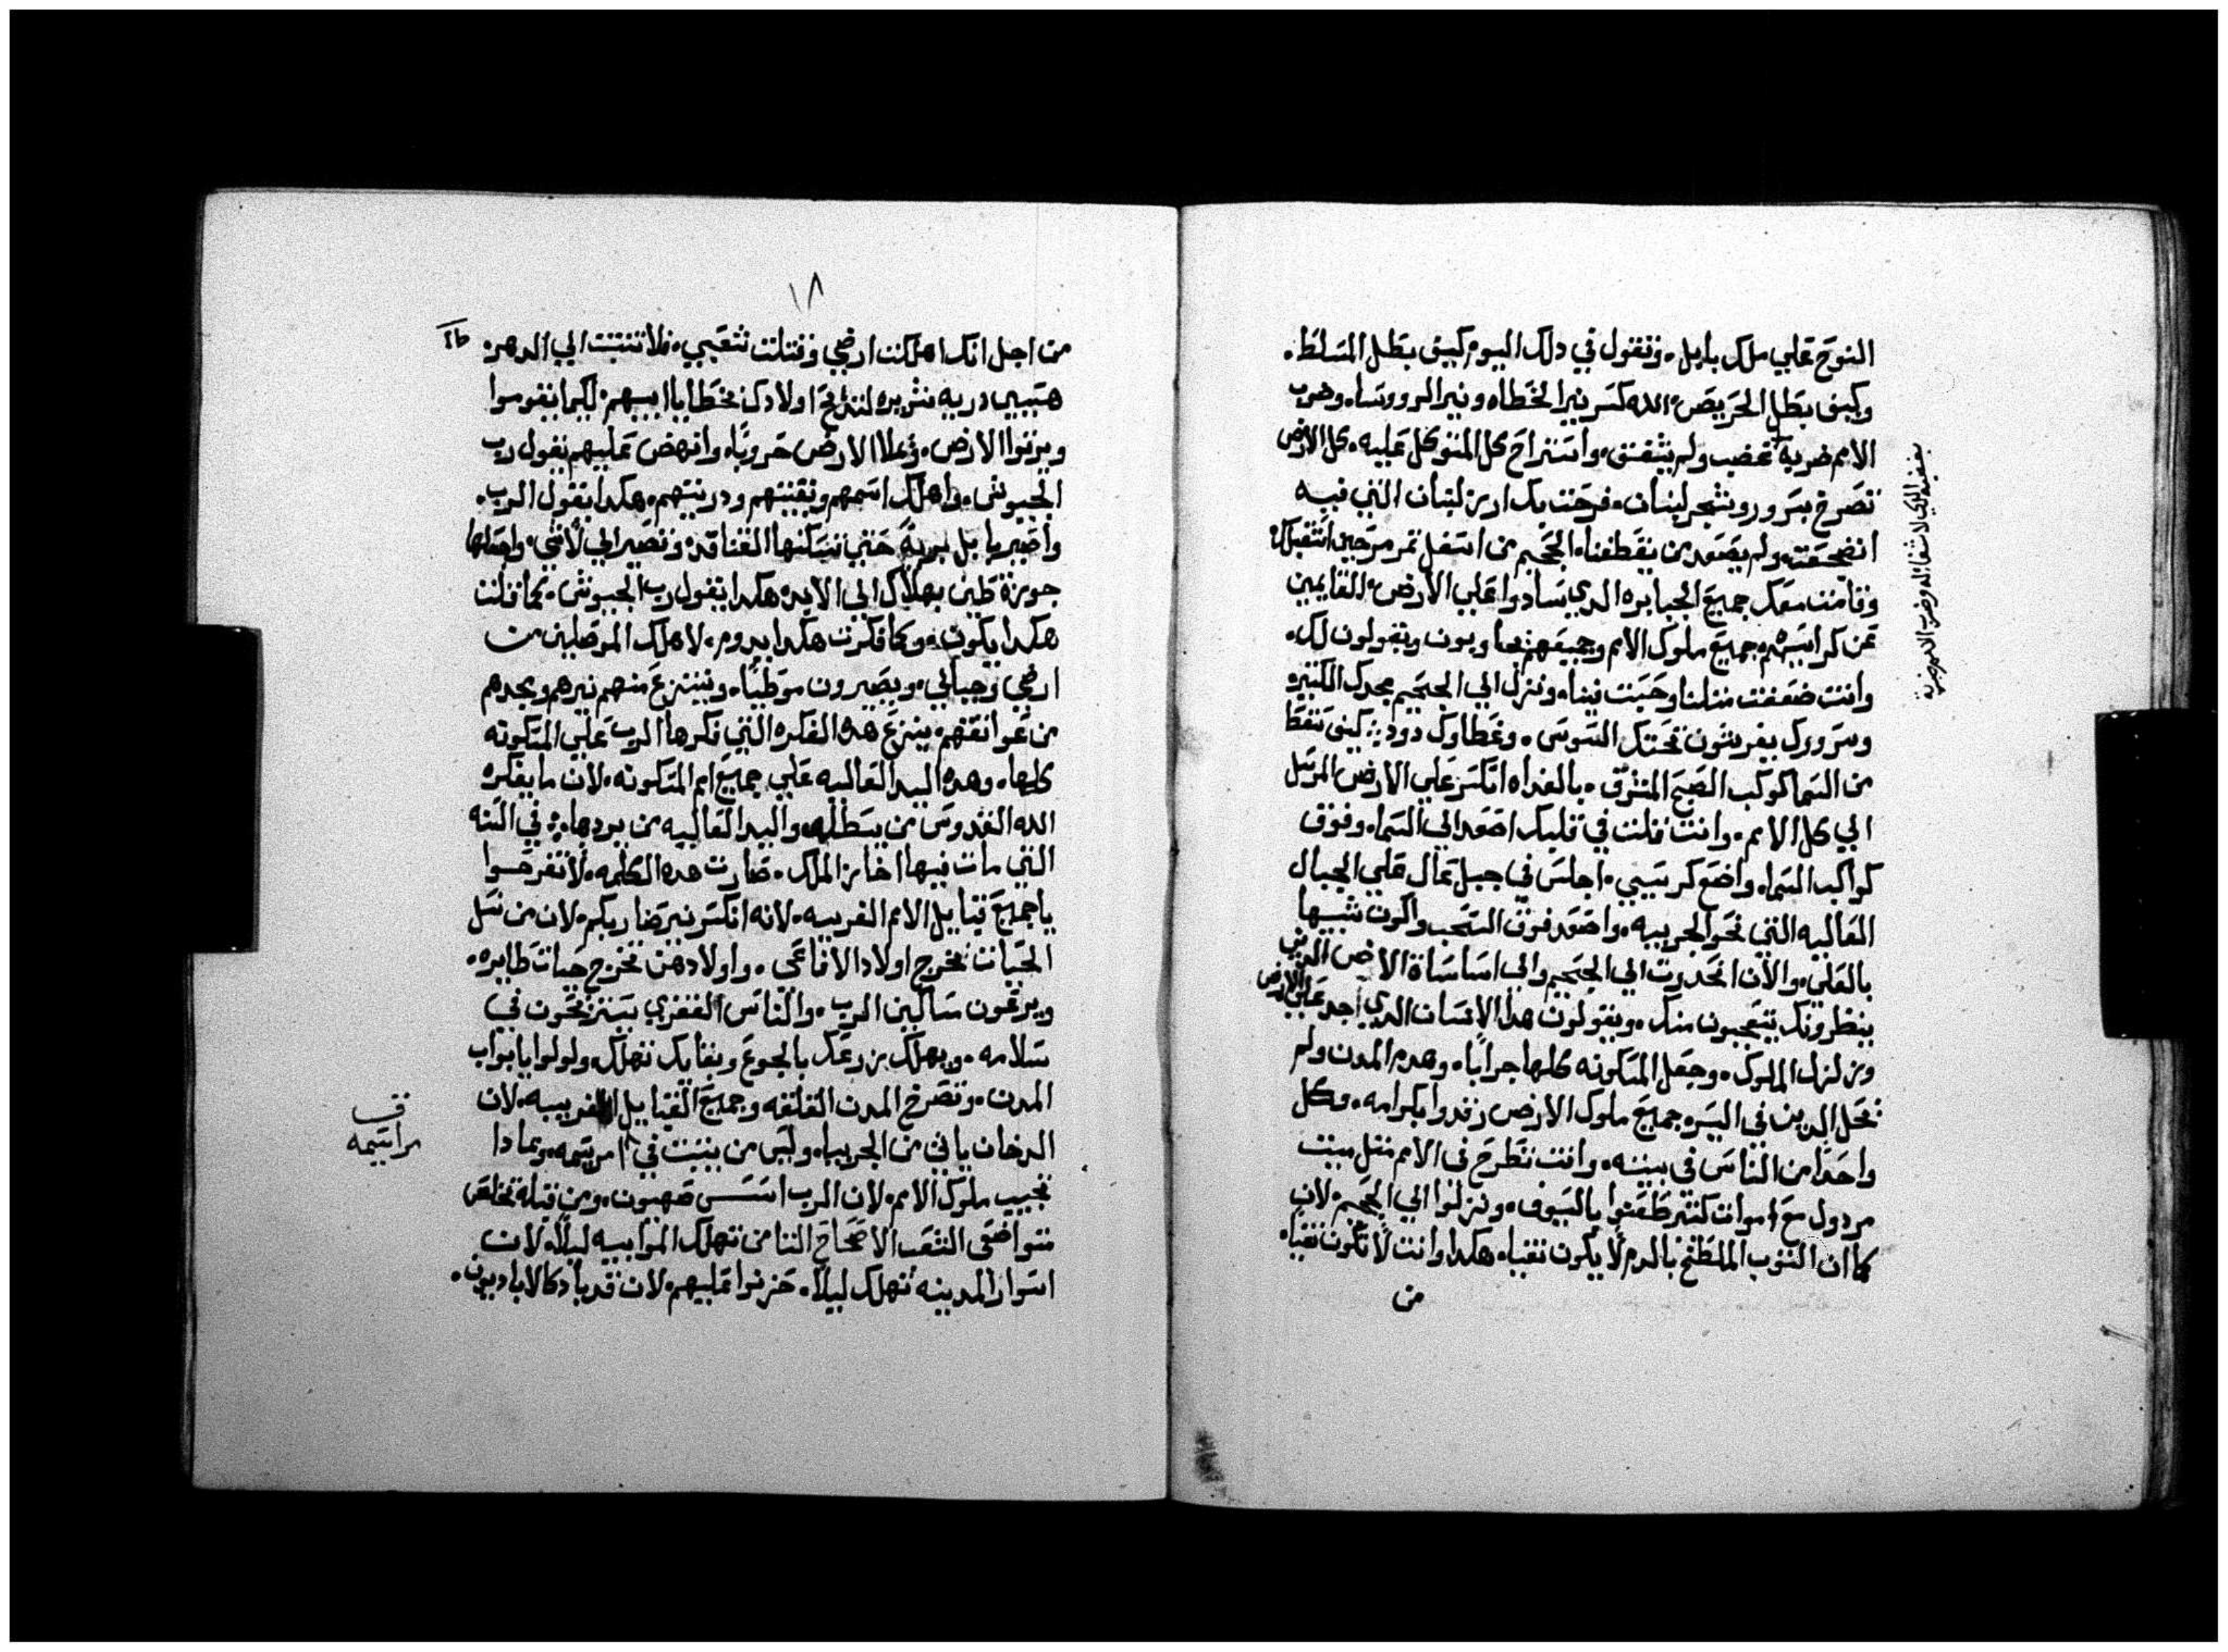 النوح علي ملك بابل. وتقول في دلك اليوم كيف بطل المسلط.
وكيف بطل الحريص. الله كسر نير الخطاه ونير الرووساه وضرب
الامم ضربة غضب ولم يشفق. واستراح كل المتوكل عليه. كل الارض
تصرخ بسرور وشجر لبنان. فرحت بك ارز لبنان التي فيه
انضجعت ولم يصعد من يقطعنا. الجحيم من اسفل تمرمر حين استقبلك
وقامت معك جميع الجبابره الدي سادوا علي الارض. القايمين
عن كراسيهم جميع ملوك الامم وجميعهم يجاوبون ويقولون لك.
وانت ضعفت متلنا وحسبت فينا. ونزل الي الجحيم مجدك الكتير
وسرورك يفرشون تحتك السوس. وغطاوك دود: كيف سقط
من السما كوكب الصبح المشرق. بالغداه انكسر علي الارض المرسل
الي كل الامم. وانت قلت في قلبك اصعد الي السما. وفوق
كواكب السما. واضع كرسيي. اجلس في جبل عال علي الجبال
العاليه التي نحو الجربيه. واصعد فوق السحب واكون شبيها
بالعلي. والان انحدرت الي الجحيم والي اساسات الارض الدين
ينظرونك يتعجبون منك. ويقولون هدا الانسان الدي اجد علي الارض
وزلزل الملوك. وجعل المسكونه كلها خرابا. وهدم المدن ولم
تحل الدين في اليسره جميع ملوك الارض رقدوا بكرامه. وكل
واحدا من الناس في بيته. وانت تطرح في الامم متل ميت
مردول مع اموات كتير طعنوا بالسيوف. ونزلوا الي الجحيم لان
كما ان التوب الملطخ بالدم لا يكون نقيا. هكدا وانت لا تكون نقيا.
من
١٨
من اجل انك اهلكت ارضي وقتلت شعبي. فلا تتبت الي الدهر.
هيبي دريه شريره لتدبح اولادك بخطايا ابيهم. لكيما يقوموا
ويرتوا الارض. وتملا الارض حروبا. وانهض عليهم يقول رب
الجيوش. واهلك اسمهم وبقيتهم ودريتهم. هكدا يقول الرب.
واصير بابل برية حتي تسكنها القنافد. وتصير الي لاشي. واجعلها
جوزة طين بهلاك الي الابد. هكدا يقول رب الجيوش. كما قلت
هكدا يكون. وكما فكرت هكدا يدوم. لاهلك الموصليين من
ارضي وجبالي. ويصيرون موطيا. وينتزع منهم نيرهم ومجدهم
من عواتقهم ينزع هده الفكره التي فكرها الرب علي المسكونه
كلها. وهده اليد العاليه علي جميع امم المسكونه. لان ما يفكره
الله القدوس من يبطله. واليد العاليه من يردها. في السنه
التي مات فيها اخاز الملك. صارت هده الكلمه. لا تفرحوا
يا جميع قبايل الامم الغريبه. لانه انكسر نير ضاربكم. لان من نسل
الحيات تخرج اولاد الافاعي. واولادهن تخرج حيات طايره.
ويرعون مساكين الرب. والناس الفقري يستريحون في
سلامه. ويهلك زرعك بالجوع وبقايك تهلك. ولولوا يا ابواب
المدن. وتصرخ المدن القلقه وجميع القبايل الغريبه. لان
الدخان ياتي من الجربيا. وليس من يتبت في مراسيمه. وبمادا
تجيب ملوك الامم. لان الرب اسس صهيون. ومن قبله تخلص
متواضعي الشعب الاصحاح التامن تهلك الموابيه ليلا. لان
اسوار المدينه تهلك ليلا. حزنوا عليهم. لان قد باد كالا باد ديبون.
مراسيمه